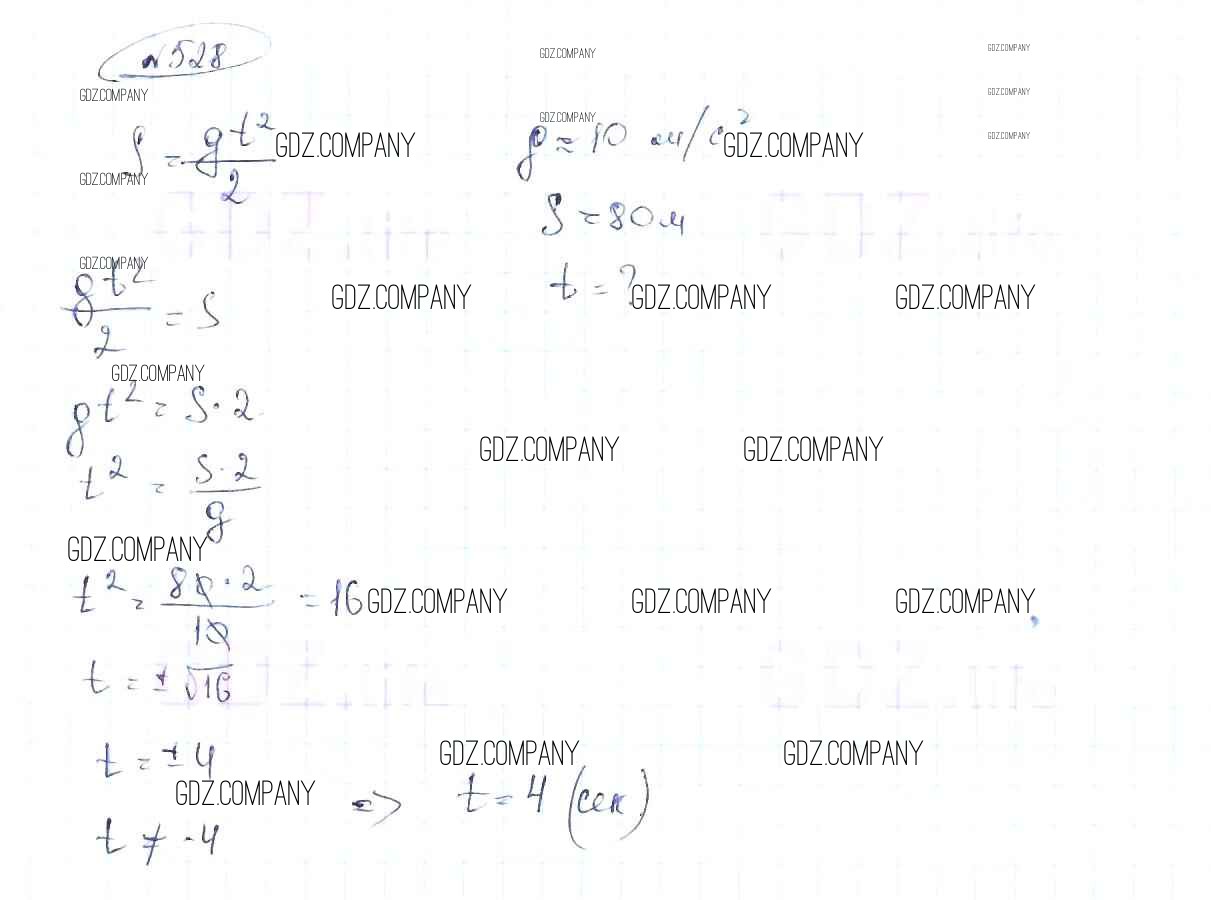 №528
GDZ.COMPANY GDZ.COMPANY
GDZ.COMPANY GDZ.COMPANY
S = gt²/2 GDZ.COMPANY GDZ.COMPANY g ≈ 10 м/с² GDZ.COMPANY GDZ.COMPANY
GDZ.COMPANY
S = 80м
GDZ.COMPANY
gt²/2 = S GDZ.COMPANY t = ? GDZ.COMPANY GDZ.COMPANY
GDZ.COMPANY
gt² = S·2
t² = S·2/g GDZ.COMPANY GDZ.COMPANY
GDZ.COMPANY
t² = 80·2/10 = 16 GDZ.COMPANY GDZ.COMPANY GDZ.COMPANY
t = ±√16
t = ±4 GDZ.COMPANY GDZ.COMPANY
GDZ.COMPANY => t = 4 (сек)
t ≠ -4